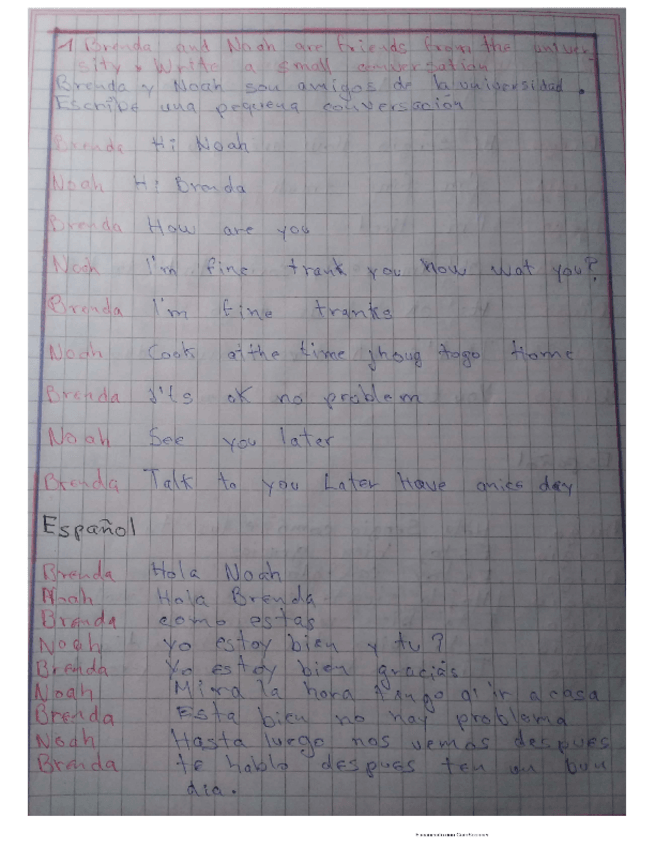 1 Brenda and Noah are friends from the univer-
sity. Write a small conversation
Brenda y Noah son amigos de la universidad.
Escribe una pequena conversación
Brenda Hi Noah
Noah Hi Brenda
Brenda How are you
Noah I'm fine trank you Now wat you?
Brenda I'm fine tranks
Noah Cook at the time togo Home
Brenda I'ts ok no problem
Noah See you later
Brenda Talk to you Later Have anice day
Español
Brenda Hola Noah
Noah Hola Brenda
Brenda como estas
Noah yo estoy bien y tu?
Brenda Yo estoy bien gracias
Noah Mira la hora ir a casa
Brenda Esta bien no hay problema
Noah Hasta luego nos vemos despues
Brenda te hablo despues ten un buen
dia.